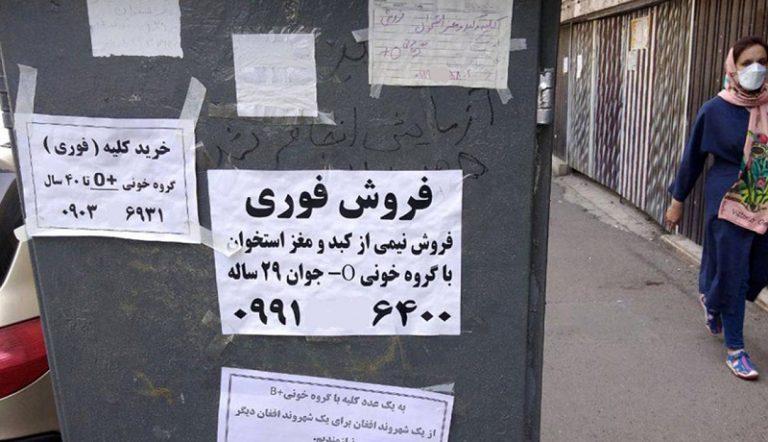 خرید کلیه ( فوری )
گروه خونی +O تا ۴۰ سال
۰۹۰۳ ۶۹۳۱
آزمایش انجام
فروش فوری
فروش نیمی از کبد و مغز استخوان
با گروه خونی O- جوان ۲۹ ساله
۰۹۹۱ ۶۴۰۰
به یک عدد کلیه با گروه خونی B+
از یک شهروند افغان برای یک شهروند افغان دیگر
نیازمندیم